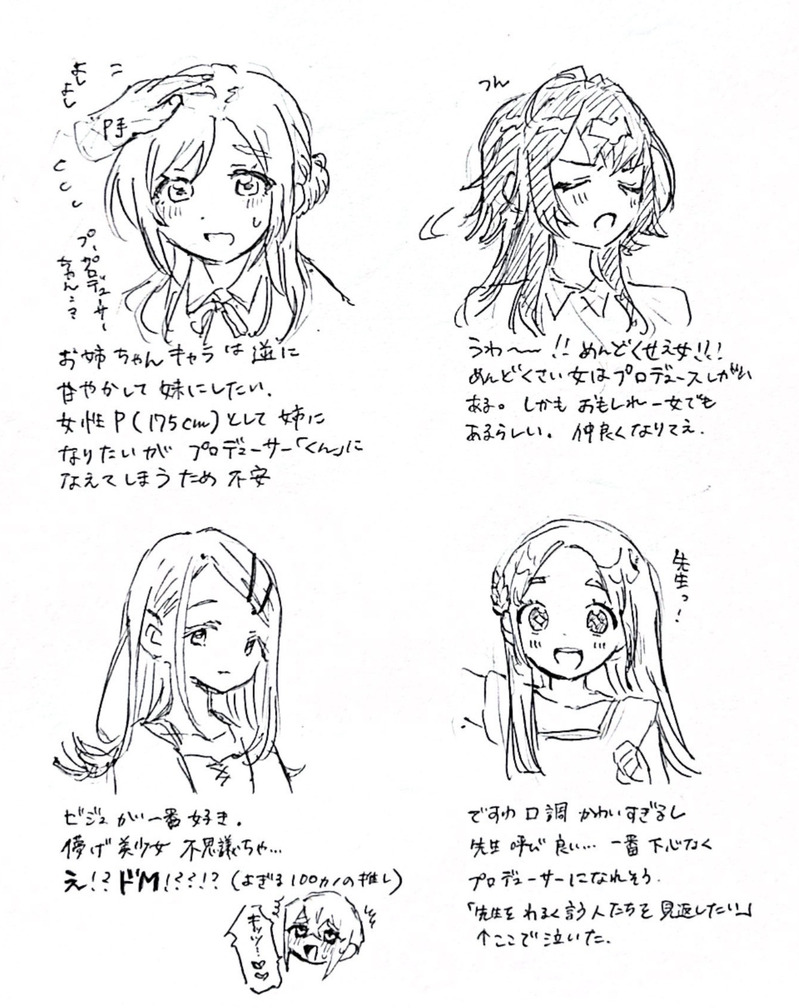 よしよし
P手
プ、プロデューサー
ちゃん…？
お姉ちゃんキャラは逆に
甘やかして妹にしたい.
女性P(175cm)として姉に
なりたいが プロデューサー「くん」に
なえてしまうため不安
つん
うわ〜〜!! めんどくせえ女!!!
めんどくさい女はプロデュースしがい
ある。しかもおもしれー女でも
あるらしい。 仲良くなりてえ.
ビジュが一番好き.
儚げ美少女 不思議ちゃ…
え!? ドM!???!? (よぎる100カノの推し)
先生っ!
ですわ口調 かわいすぎるし
先生呼び 良い… 一番下心なく
プロデューサーになれそう.
「先生をわるく言う人たちを見返したい」
↑ここで泣いた.